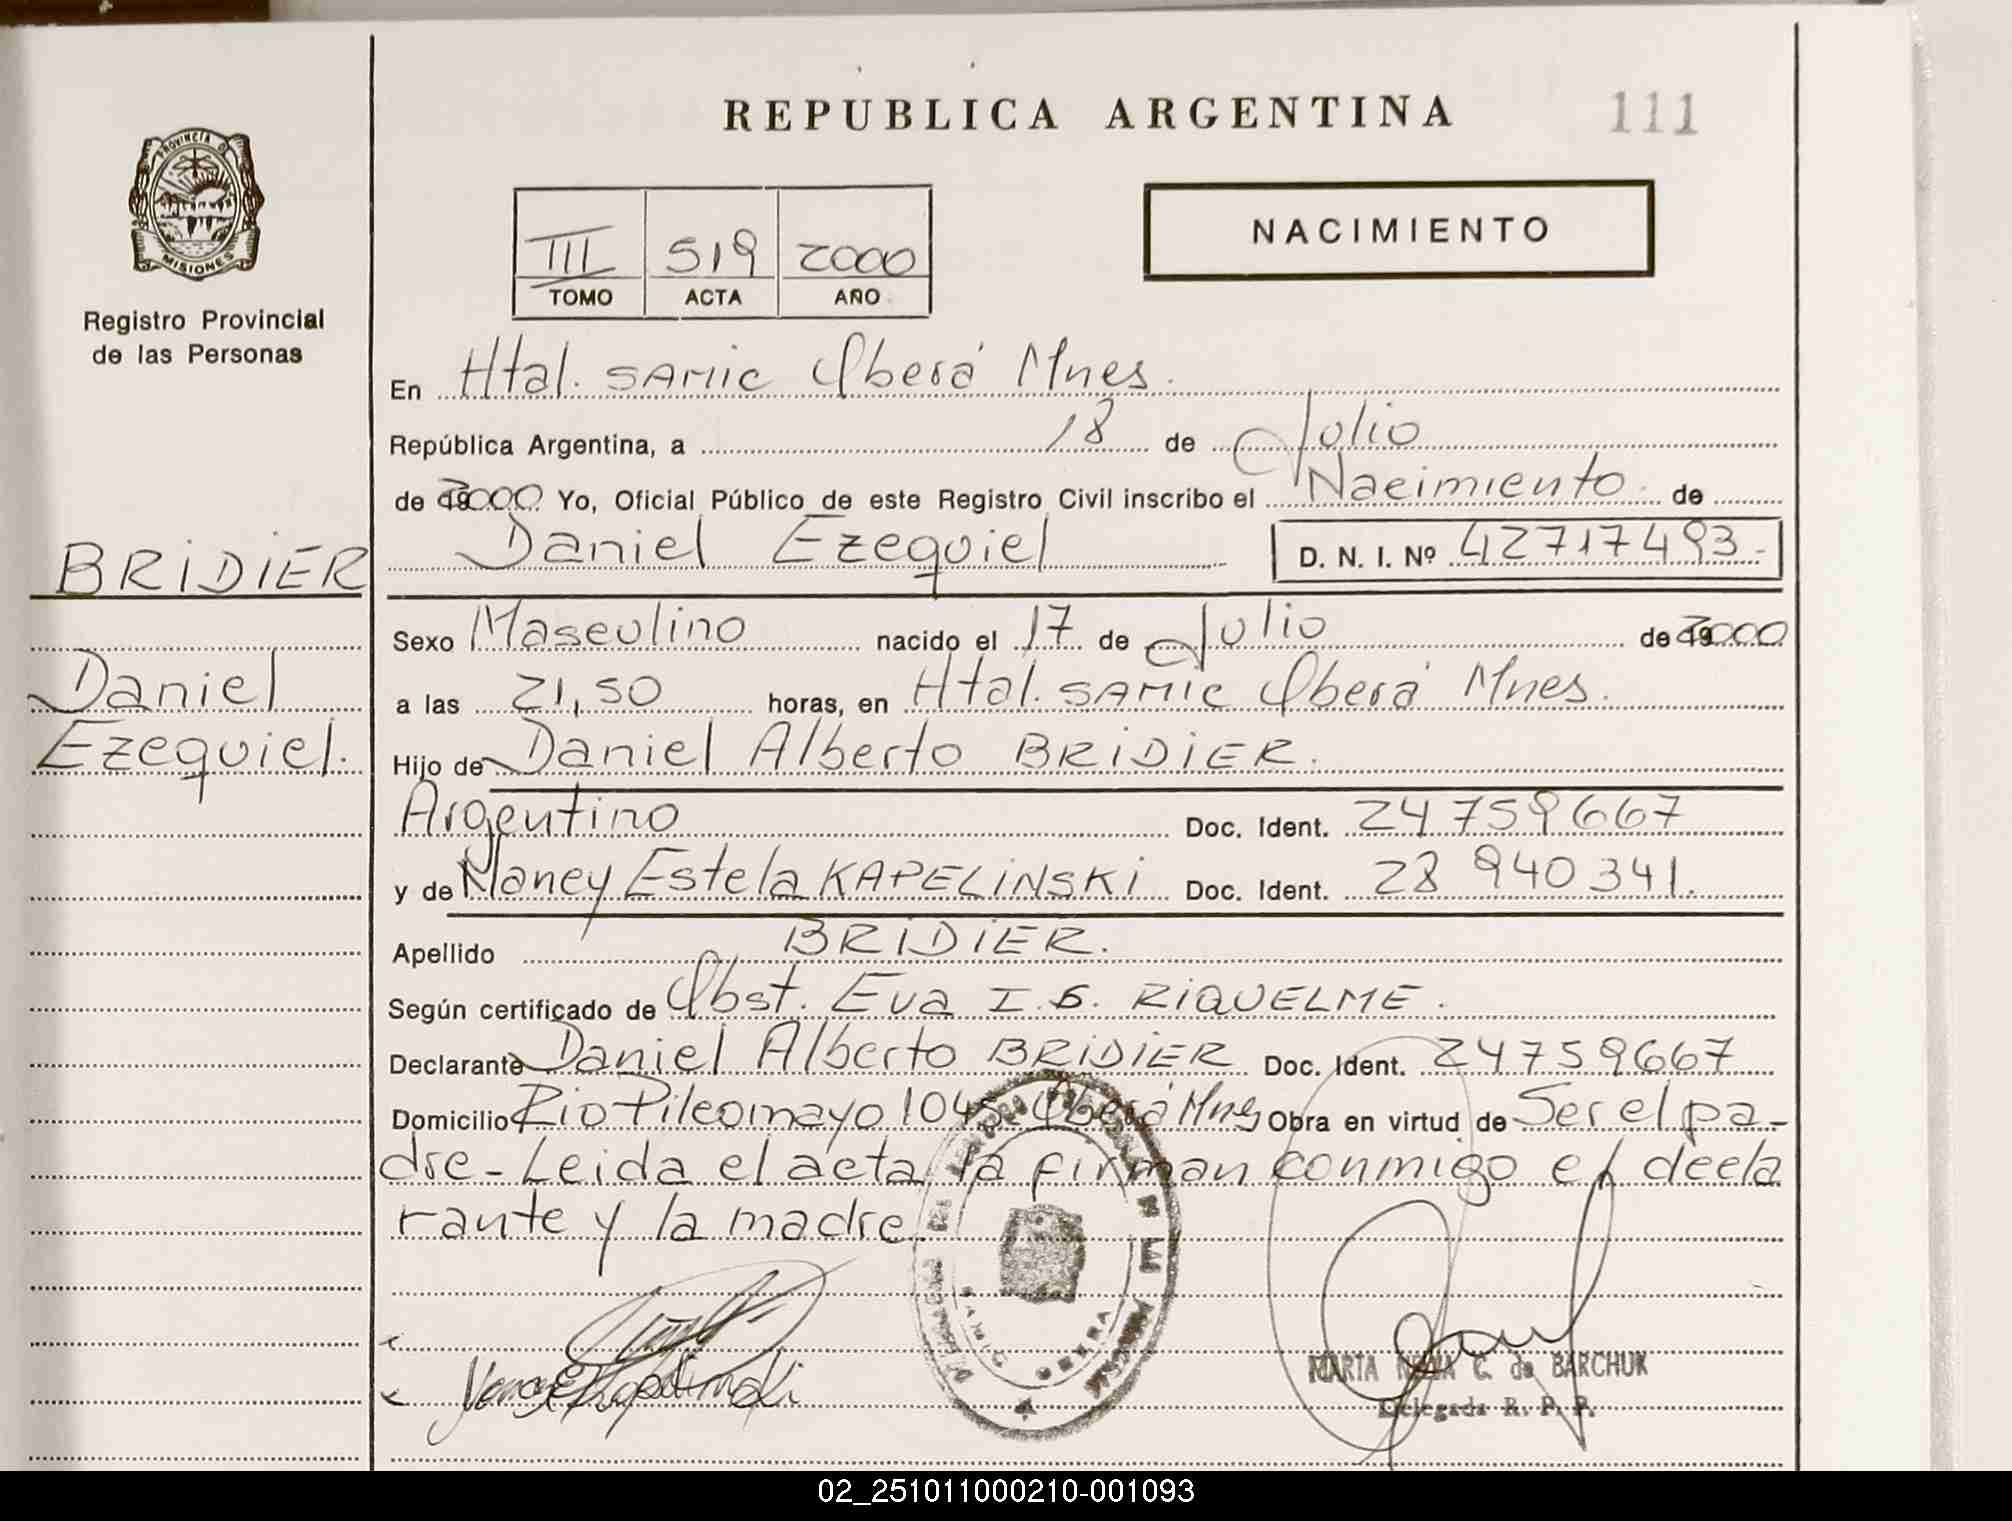 REPUBLICA ARGENTINA
111
PROVINCIA D
MISIONES
Registro Provincial
de las Personas
III 519 2000
TOMO ACTA AÑO
NACIMIENTO
En Htal. SAMIC Oberá Mnes.
República Argentina, a 18 de Julio
de 2000 Yo, Oficial Público de este Registro Civil inscribo el Nacimiento de
BRIDIER
Daniel Ezequiel D. N. I. Nº 42717493.-
Sexo Masculino nacido el 17 de Julio de 2000
Daniel
a las 21,50 horas, en Htal. SAMIC Oberá Mnes.
Ezequiel.
Hijo de Daniel Alberto BRIDIER.
Argentino Doc. Ident. 24759667
y de Nancy Estela KAPELINSKI Doc. Ident. 28 940 341.
Apellido BRIDIER.
Según certificado de Obst. Eva I. G. RIQUELME.
Declarante Daniel Alberto BRIDIER Doc. Ident. 24759667
Domicilio Rio Pilcomayo 1045 Oberá Mnes Obra en virtud de Ser el pa-
dre - Leida el acta la firman conmigo el decla
rante y la madre
OBERA
MARIA C. de BARCHUK
Delegada R. P. P.
02_251011000210-001093